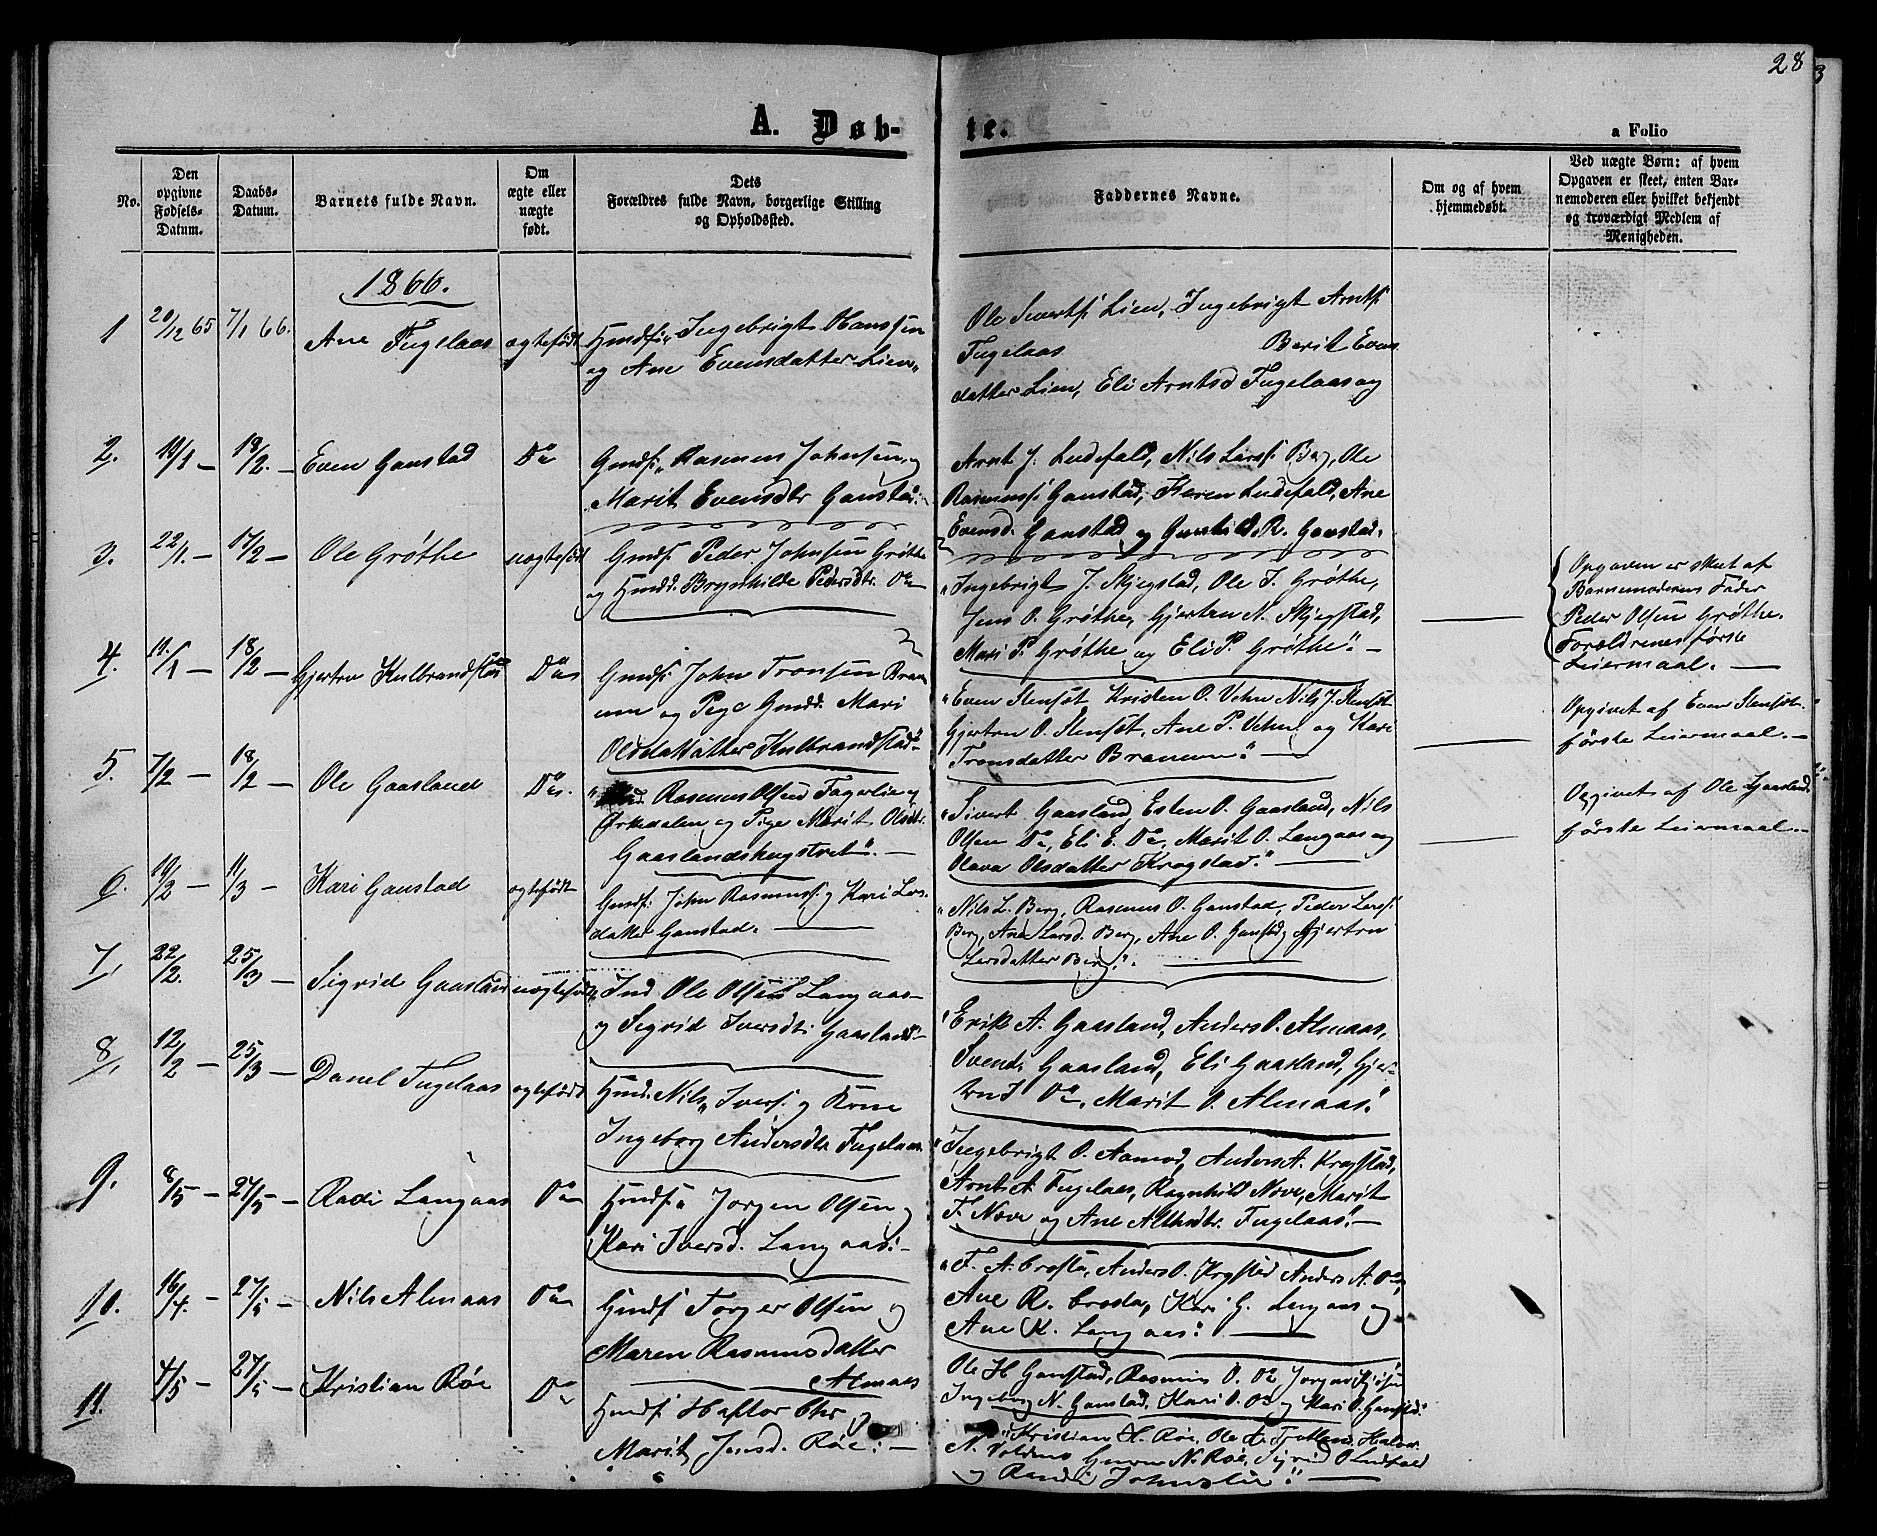 28
3
A. Døb-
te.
a Folio
No.
Den
opgivne
Fødsels-
Datum.
Daabs-
Datum.
Barnets fulde Navn.
Om
ægte eller
uægte
født.
Dets
Forældres fulde Navn, borgerlige Stilling
og Opholdssted.
Faddernes Navne.
Om og af hvem
hjemmedøbt.
Ved uægte Børn: af hvem
Opgaven er skeet, enten Bar-
nemoderen eller hvilket bekjendt
og troværdigt Medlem af
Menigheden.
1866.
1 20/12 65 7/1 66. Ane Fugelaas ægtefødt
Hmdf. Ingebrigt Hanssen
og Ane Evensdatter Lien
Ole Sivertsf. Lien, Ingebrigt Arntsf.
Fugelaas Berit Evens
datter Lien, Eli Arntsd Fugelaas og
2. 10/1 - 18/2 - Even Ganstad Do
Gmdf. Rasmus Johnsen, og
Marit Evensdtr Ganstad.
Arnt J. Ludefald, Nils Larsf. Berg, Ole
Rasmusf. Ganstad, Karen Ludefald, Ane
Evensd. Ganstad og Gunhild R. Ganstad.
3. 22/1 - 17/2 - Ole Grøthe uægtefød
Gmdf. Peder Johnsen Grøthe
og Hmdd. Brynhilde Pedersdtr. Do
Ingebrigt J. Skjegstad, Ole J. Grøthe,
Jens O. Grøthe, Gjertru N. Skjegstad,
Mari P. Grøthe og Eli P. Grøthe. -
Opgaven er skeet af
Barnemoderens Fader
Peder Olsen Grøthe.
Forældrenes første
Leiermaal. -
4. 19/1 - 18/2 - Gjertru Kulbrandstad Do
Gmdf. John Tronsen Bra
num og Pige Gmdd. Mari
Olsdatter Kulbrandstad
Even Stensøt Kristen O. Vehn Nils J. Stensøt
Gjertru O. Stensøt, Ane P. Vehn og Kari
Tronsdatter Branum. -
Opgivet af Even Stensøt.
første Leiermaal. -
5. 7/2 - 18/2 - Ole Gaasland Do
Rasmus Olsen Fagerlie
Ørkedalen og Pige Marit Olsdtr.
Gaaslandshugstret. -
Sivert Gaasland, Esten O. Gaasland, Nils
Olsen Do, Eli E. Do, Marit O. Langaas og
Olava Olsdatter Krogstad. -
Opgivet af Ole Gaasland
første Leiermaal. -
6. 19/2 - 11/3 - Kari Ganstad ægtefødt
Gmdf. John Rasmusf. og Kari Lars
datter Ganstad. -
Nils L. Berg, Rasmus O. Ganstad, Peder Larsf.
Berg, Ane Larsd. Berg, Ane O. Ganstad, Gjertru
Larsdatter Berg. -
7. 22/2. 25/3 - Sigrid Gaasland uægtefødt
Ind. Ole Olsen Langaas
og Sigrid Iversdt. Gaasland
Erik A. Gaasland, Anders O. Almaas,
Svend Gaasland, Eli Gaasland, Gjer-
tru I Do, Marit O. Almaas.
8. 12/2 - 25/3 - Danel Fugelaas ægtefødt
Hmd. Nils Iversf. og Kone
Ingeborg Andersdtr Fugelaas
Ingebrigt O. Aamod, Anders A. Krogstad,
Arnt A Fugelaas, Ragnhild Nove, Marit
F. Nove og Ane Fugelaas. -
9. 8/5 - 27/5 - Langaas Do
Hmdf. Jørgen Olsen og
Kari Iversd. Langaas. -
F. A. Anders O. Krogstad Anders A. Do,
Ane R. Kari G. Langaas og
Ane K. Langaas. -
10. 16/4. - 27/5 - Nils Almaas Do
Gmdf. Torger Olsen og
Maren Rasmusdatter
Almaas
Ole H Ganstad, Rasmus O. Do
Ingeborg N. Ganstad, Kari O. Do og Mari O. Ganstad.
11. 4/5 - 27/5 - Kristian Røe Do
Hmdf. Haftor Chr
Marit Jensd. Røe. -
Kristian H. Røe, Ole
N. Volden N. Røe, Sigrid O Ludfald
og Johnslie. -